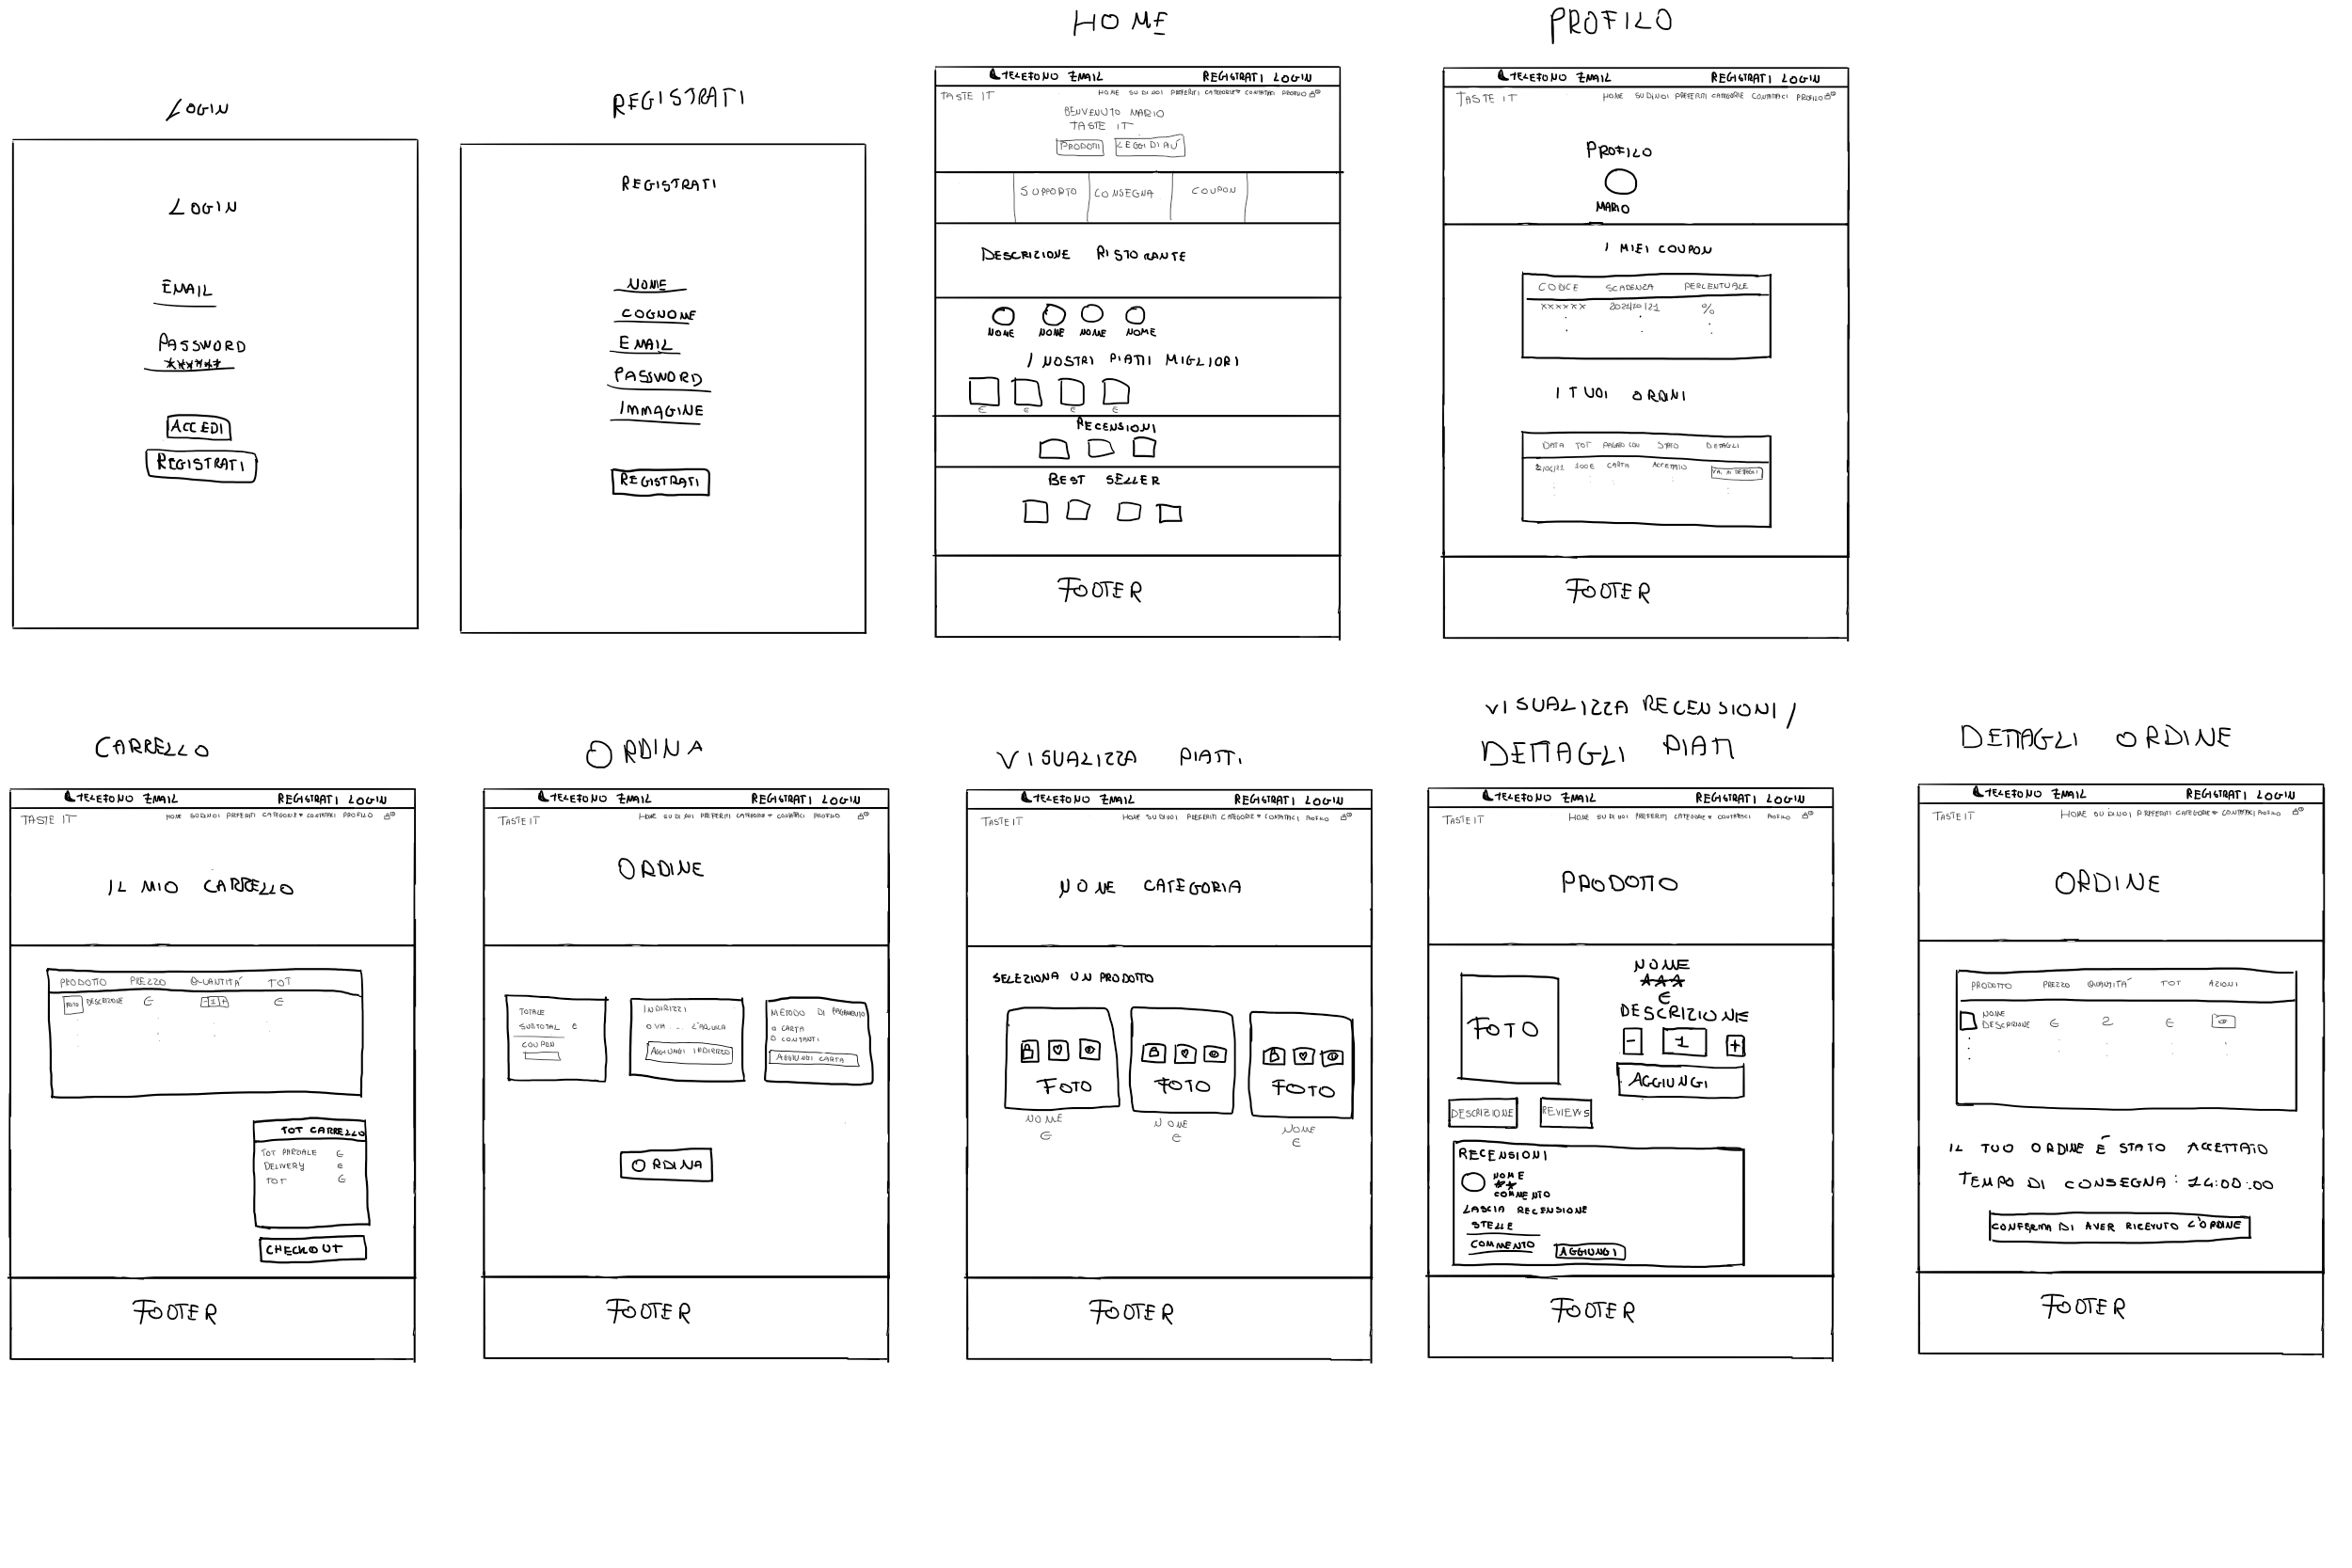 LOGIN
LOGIN
EMAIL
PASSWORD
******
ACCEDI
REGISTRATI
REGISTRATI
REGISTRATI
NOME
COGNOME
EMAIL
PASSWORD
IMMAGINE
REGISTRATI
HOME
TELEFONO EMAIL REGISTRATI LOGIN
TASTE IT HOME SU DI NOI PREFERITI CATEGORIE CONTATTACI PROFILO
BENVENUTO MARIO
TASTE IT
PRODOTTI LEGGI DI PIÚ
SUPPORTO CONSEGNA COUPON
DESCRIZIONE RISTORANTE
NOME NOME NOME NOME
I NOSTRI PIATTI MIGLIORI
€ € € €
RECENSIONI
BEST SELLER
FOOTER
PROFILO
TELEFONO EMAIL REGISTRATI LOGIN
TASTE IT HOME SU DI NOI PREFERITI CATEGORIE CONTATTACI PROFILO
PROFILO
MARIO
I MIEI COUPON
CODICE SCADENZA PERCENTUALE
XXXXXX %
I TUOI ORDINI
DATA TOT PAGATO CON STATO DETTAGLI
200€ CARTA ACCETTATO VAI A DETTAGLI
FOOTER
CARRELLO
TELEFONO EMAIL REGISTRATI LOGIN
TASTE IT HOME SU DI NOI PREFERITI CATEGORIE CONTATTACI PROFILO
IL MIO CARRELLO
PRODOTTO PREZZO QUANTITÁ TOT
FOTO DESCRIZIONE € -1+ €
TOT CARRELLO
TOT PARZIALE €
DELIVERY €
TOT €
CHECKOUT
FOOTER
ORDINA
TELEFONO EMAIL REGISTRATI LOGIN
TASTE IT HOME SU DI NOI PREFERITI CATEGORIE CONTATTACI PROFILO
ORDINE
TOTALE
SUBTOTAL €
COUPON
INDIRIZZI
O VIA ... L'AQUILA
AGGIUNGI INDIRIZZO
METODO DI PAGAMENTO
O CARTA
O CONTANTI
AGGIUNGI CARTA
ORDINA
FOOTER
VISUALIZZA PIATTI
TELEFONO EMAIL REGISTRATI LOGIN
TASTE IT HOME SU DI NOI PREFERITI CATEGORIE CONTATTACI PROFILO
NOME CATEGORIA
SELEZIONA UN PRODOTTO
FOTO FOTO FOTO
NOME NOME NOME
€ € €
FOOTER
VISUALIZZA RECENSIONI/
DETTAGLI PIATTI
TELEFONO EMAIL REGISTRATI LOGIN
TASTE IT HOME SU DI NOI PREFERITI CATEGORIE CONTATTACI PROFILO
PRODOTTO
FOTO
NOME
€
DESCRIZIONE
- 1 +
AGGIUNGI
DESCRIZIONE REVIEWS
RECENSIONI
NOME
**
COMMENTO
LASCIA RECENSIONE
STELLE
COMMENTO AGGIUNGI
FOOTER
DETTAGLI ORDINE
TELEFONO EMAIL REGISTRATI LOGIN
TASTE IT HOME SU DI NOI PREFERITI CATEGORIE CONTATTACI PROFILO
ORDINE
PRODOTTO PREZZO QUANTITÁ TOT AZIONI
NOME
DESCRIZIONE € 2 €
IL TUO ORDINE É STATO ACCETTATO
TEMPO DI CONSEGNA: 14:00:00
CONFERMA DI AVER RICEVUTO L'ORDINE
FOOTER